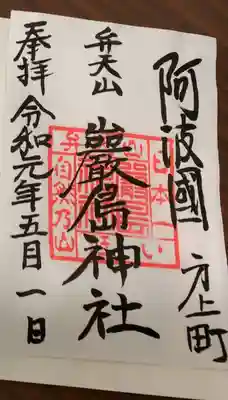 阿波國
方上町
弁天山
巖島神社
奉拝
令和元年五月一日
日本一
自然乃山